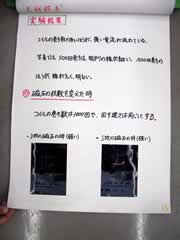 実験結果
コイルの巻き数が多いほど、強い電流が流れている。
写真では、500回巻きは、明かりの線が細い。1000回巻きの
ほうが、線が太く、明るい。
② 磁石の個数を変えた時
コイルの巻き数は1000回で、回す速さは同じにする。
・3枚の磁石の時(弱い)
・5枚の磁石の時(強い)